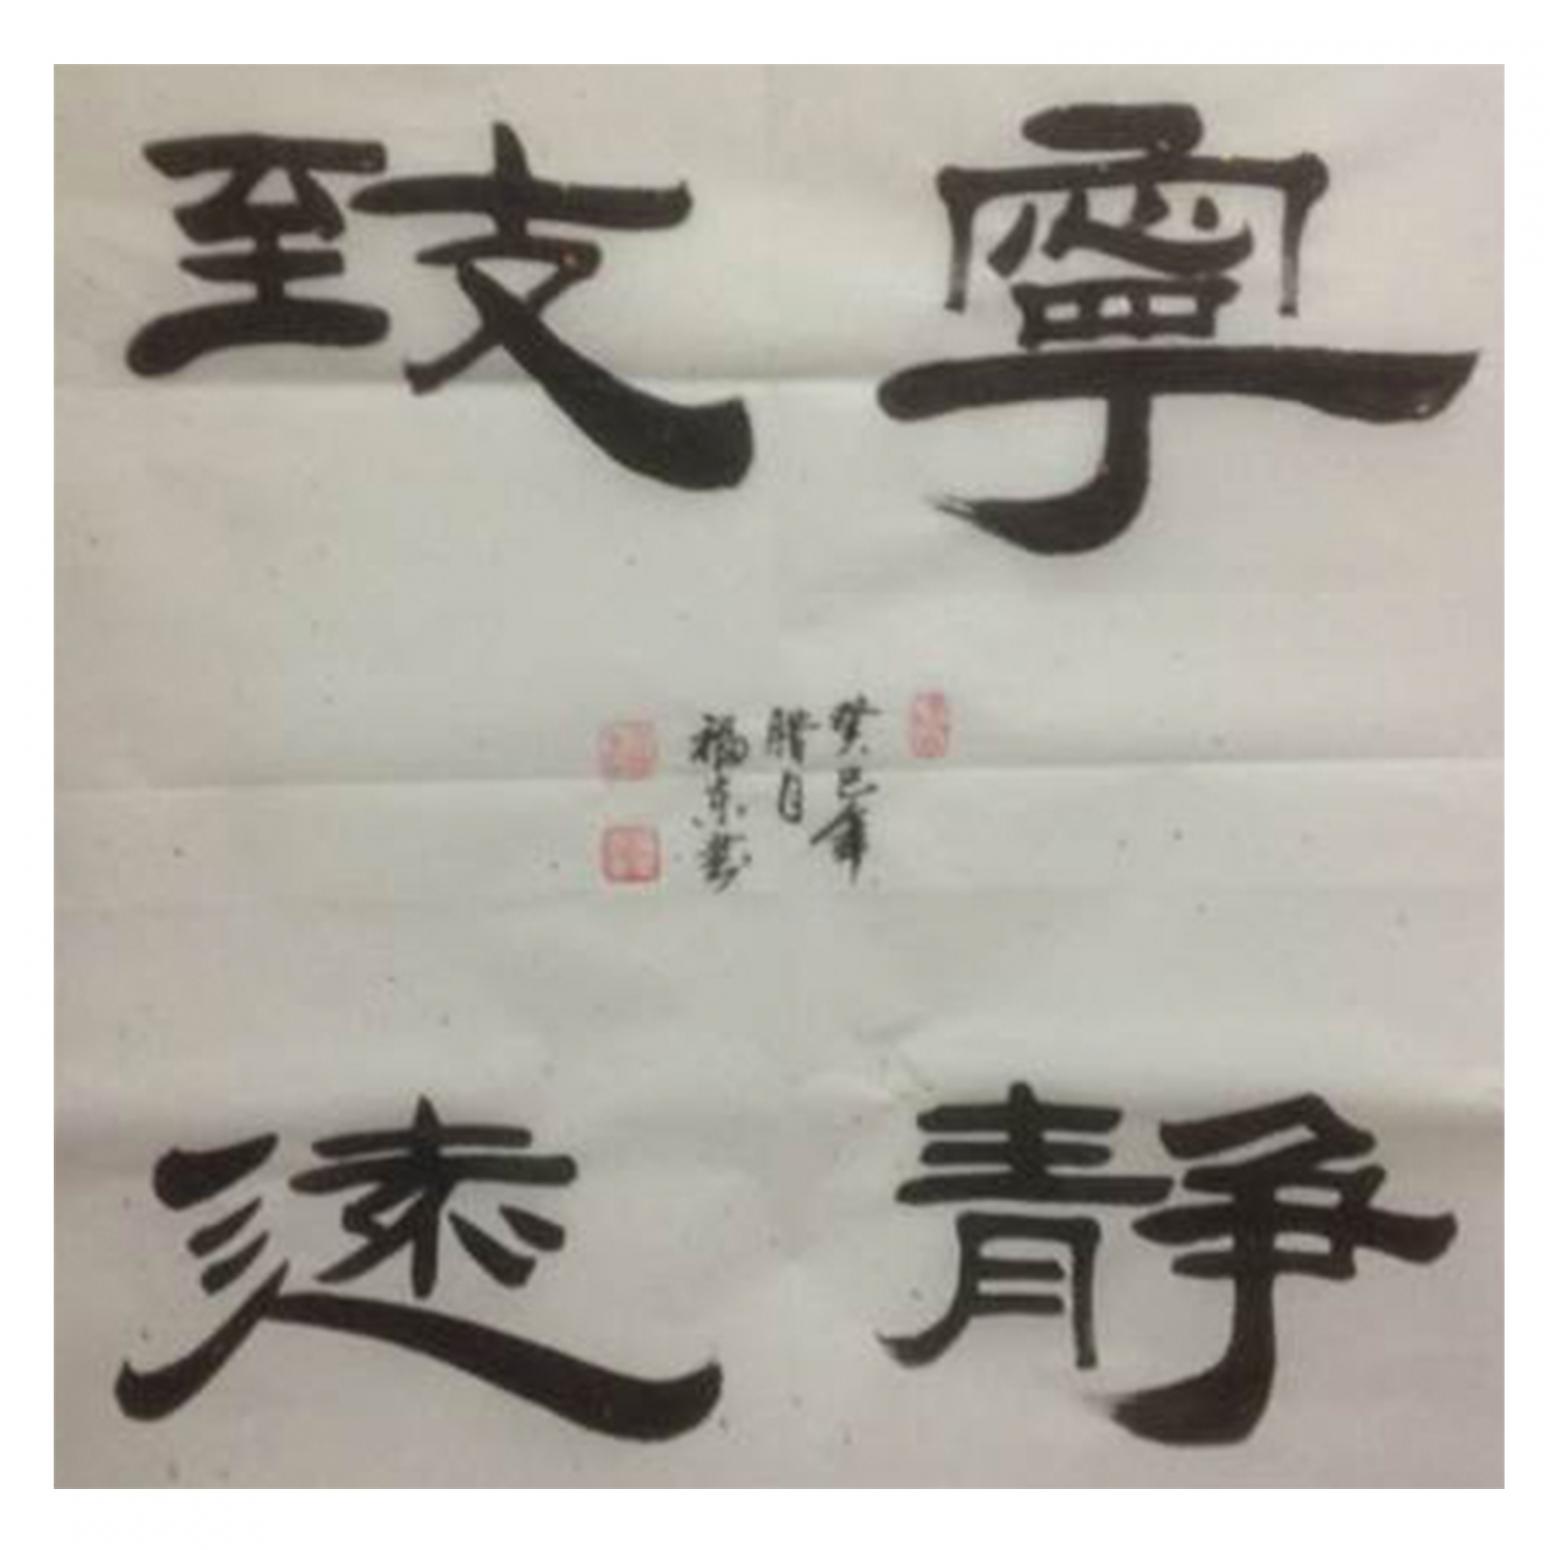 寧靜
致遠
癸巳年
腊月
福东書